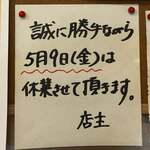 誠に勝手ながら
5月9日(金)は
休業させて頂きます。
店主